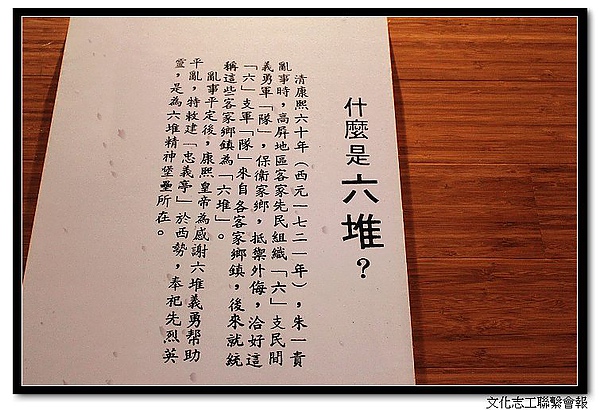 什麼是六堆？
清康熙六十年（西元一七二一年），朱一貴
亂事時，高屏地區客家先民組織「六」支民間
義勇軍「隊」，保衛家鄉，抵禦外侮，洽好這
「六」支軍「隊」來自各客家鄉鎮，後來就統
稱這些客家鄉鎮為「六堆」。
亂事平定後，康熙皇帝為感謝六堆義勇幫助
平亂，特敕建「忠義亭」於西勢，奉祀先烈英
靈，是為六堆精神堡壘所在。
文化志工聯繫會報